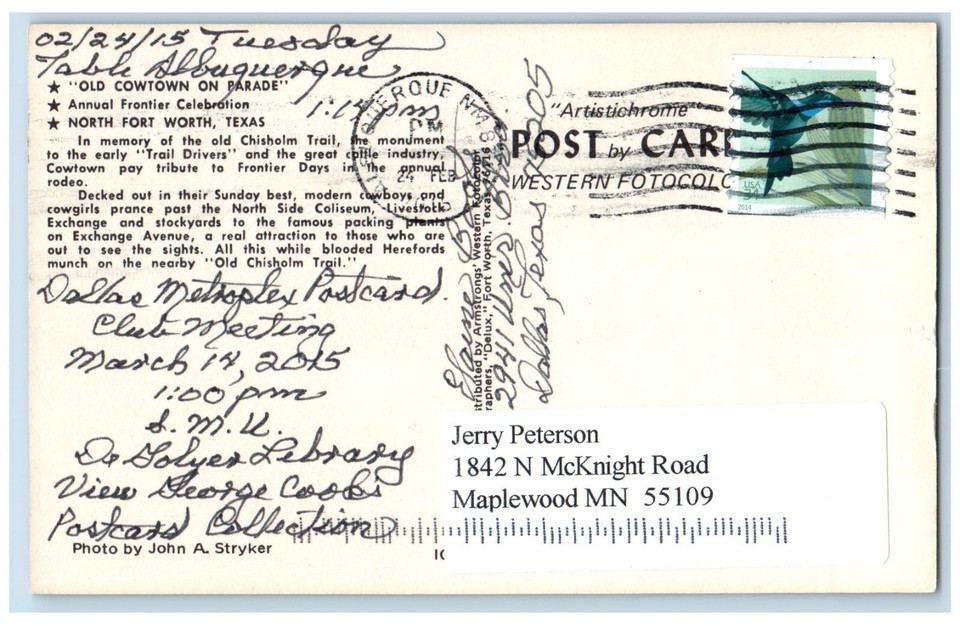 02/24/15 Tuesday
Table Albuquerque
★ "OLD COWTOWN ON PARADE"
★ Annual Frontier Celebration
1:14 pm
★ NORTH FORT WORTH, TEXAS
In memory of the old Chisholm Trail, the monument
to the early "Trail Drivers" and the great cattle industry,
Cowtown pay tribute to Frontier Days in the annual
rodeo.
Decked out in their Sunday best, modern cowboys and
cowgirls prance past the North Side Coliseum, Livestock
Exchange and stockyards to the famous packing plants
on Exchange Avenue, a real attraction to those who are
out to see the sights. All this while blooded Herefords
munch on the nearby "Old Chisholm Trail."
Dallas Metroplex Postcard
Club Meeting
March 14, 2015
1:00 pm
S.M.U.
DeGolyer Library
View George Cook's
Postcard Collection
Photo by John A. Stryker
QUERQUE NM 8
PM
24 FEB
Elaine
2941
Dallas, Texas
tributed by Armstrongs' Western Fotocolor
raphers, "Delux," Fort Worth, Texas 76116
"Artistichrome
POST by CAR
WESTERN FOTOCOLO
USA
34
2014
Jerry Peterson
1842 N McKnight Road
Maplewood MN 55109